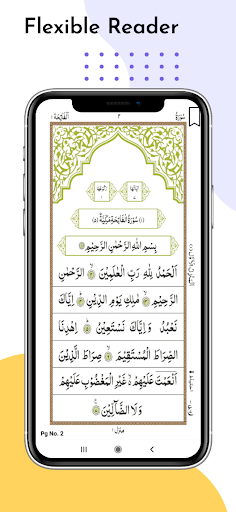 Flexible Reader
سُوْرَةُ ٢ اَلْفَاتِحَة ١
(١) سُوْرَةُ الْفَاتِحَةِ مَكِّيَّةٌ (٥)
بِسْمِ اللهِ الرَّحْمٰنِ الرَّحِيْمِ
اَلْحَمْدُ لِلّٰهِ رَبِّ الْعٰلَمِيْنَ ۝ الرَّحْمٰنِ
الرَّحِيْمِ ۝ مٰلِكِ يَوْمِ الدِّيْنِ ۝ اِيَّاكَ
نَعْبُدُ وَ اِيَّاكَ نَسْتَعِيْنُ ۝ اِهْدِنَا
الصِّرَاطَ الْمُسْتَقِيْمَ ۝ صِرَاطَ الَّذِيْنَ
اَنْعَمْتَ عَلَيْهِمْ ۝ غَيْرِ الْمَغْضُوْبِ عَلَيْهِمْ
وَلَا الضَّآلِّيْنَ ۝
منزل ١
Pg No. 2